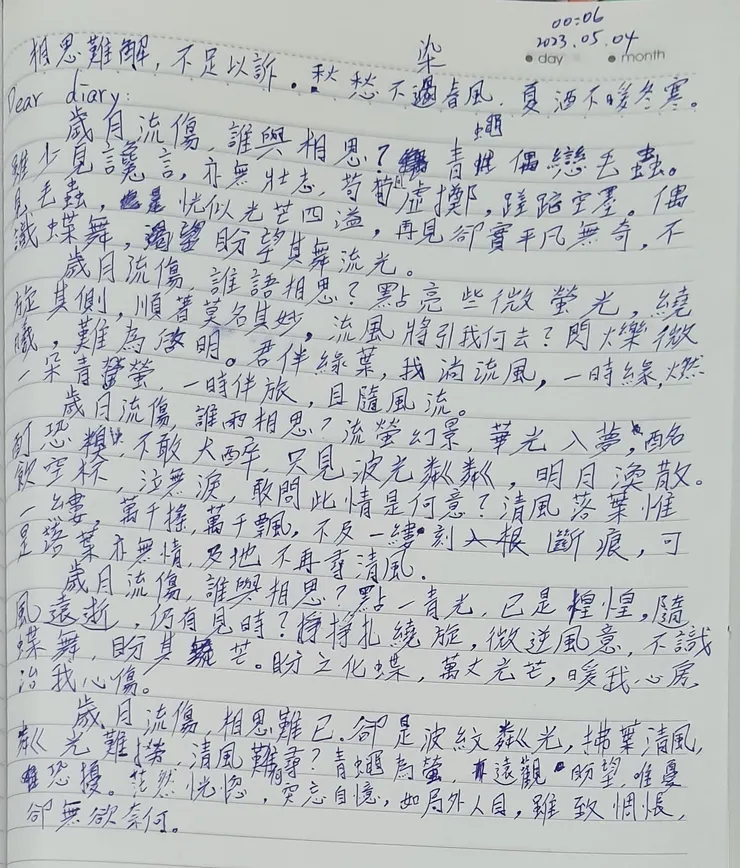 00:06
2023.05.04
day month
相思難解，不足以訴。秋愁不染春風，夏酒不暖冬寒。
Dear diary:
歲月流傷，誰與相思？青蠅偶戀毛蟲。
雖少見讒言，亦無壯志，苟苟虛擲，蹉跎空墨。偶
見毛蟲，恍似光芒四溢，再見卻實平凡無奇，不
識蝶舞，盼望其舞流光。
歲月流傷，誰語相思？點亮些微螢光，繞
旋其側，順著莫名其妙，流風將引我何去？閃爍微
曦，難為啟明。君伴綠葉，我淌流風，一時緣，燃
一朵青螢，一時伴旅，自隨風流。
歲月流傷，誰雨相思？流螢幻景，華光入夢，酩
酊恐糗，不敢大醉，只見波光粼粼，明月渙散。
飲空杯，泣無淚，敢問此情是何意？清風落葉惟
一縷，萬千搖，萬千飄，不及一縷刻入根斷痕，可
是落葉亦無情，及地不再尋清風。
歲月流傷，誰與相思？點一青光，已是惶惶，隨
風遠逝，仍有見時？掙掙扎繞旋，微逆風意，不識
蝶舞，盼其芒。盼之化蝶，萬丈光芒，暖我心房，
治我心傷。
歲月流傷，相思難已。卻是波紋粼光，拂葉清風，
粼光難撈，清風難尋？青蠅為螢，遠觀盼望，唯憂
恐擾。茫然恍惚，突忘自憶，如局外人目，雖致惆悵，
卻無欲奈何。